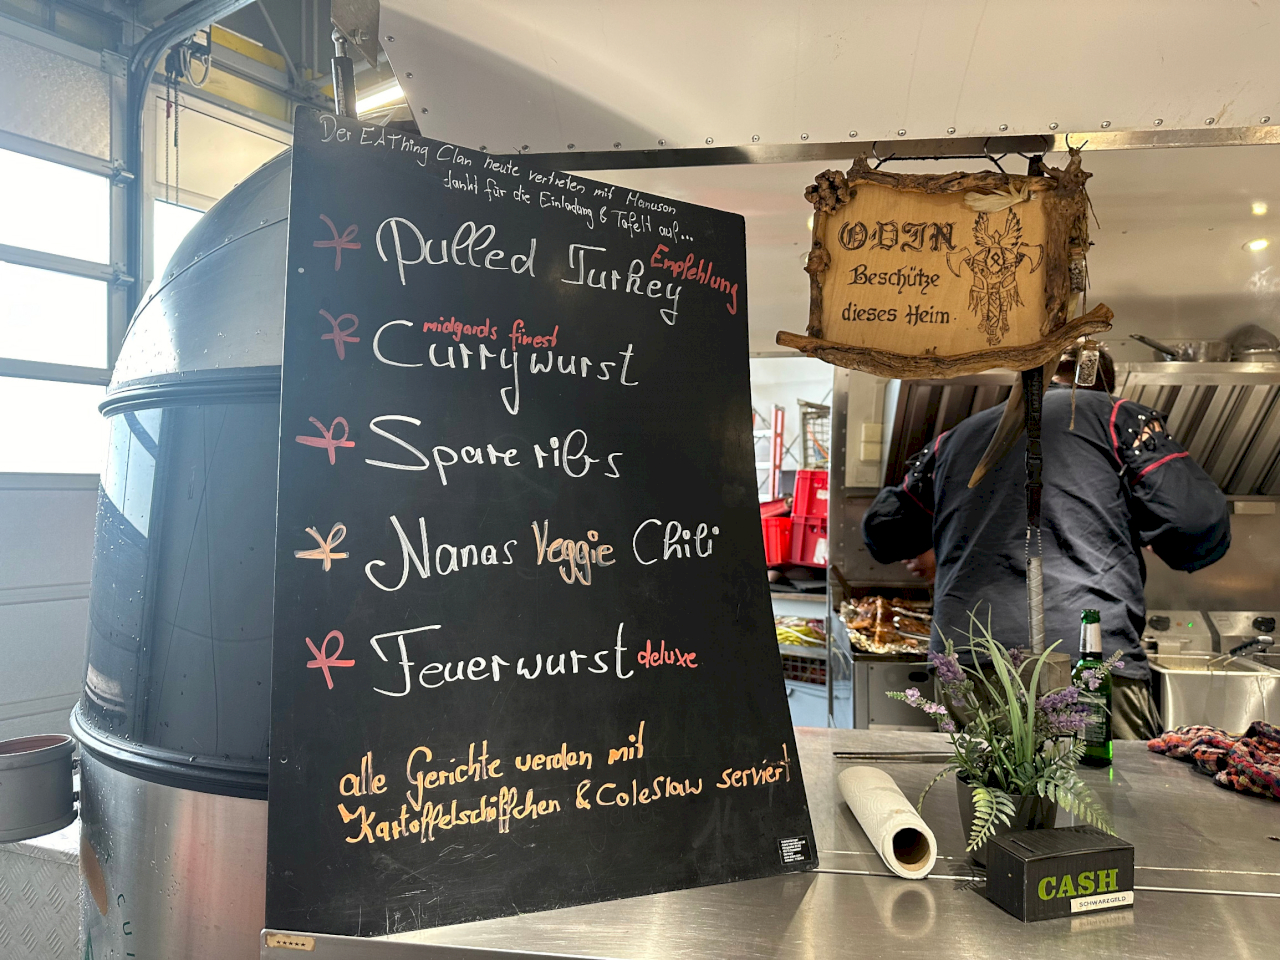 Der EAThing Clan heute vertreten mit Manuson
dankt für die Einladung & Tafelt auf...
Pulled Turkey
Empfehlung
midgards finest
Currywurst
Spare ribs
Nanas Veggie Chili
Feuerwurst deluxe
alle Gerichte werden mit
Kartoffelschiffchen & Coleslaw serviert
ODIN
Beschütze
dieses Heim
CASH
SCHWARZGELD